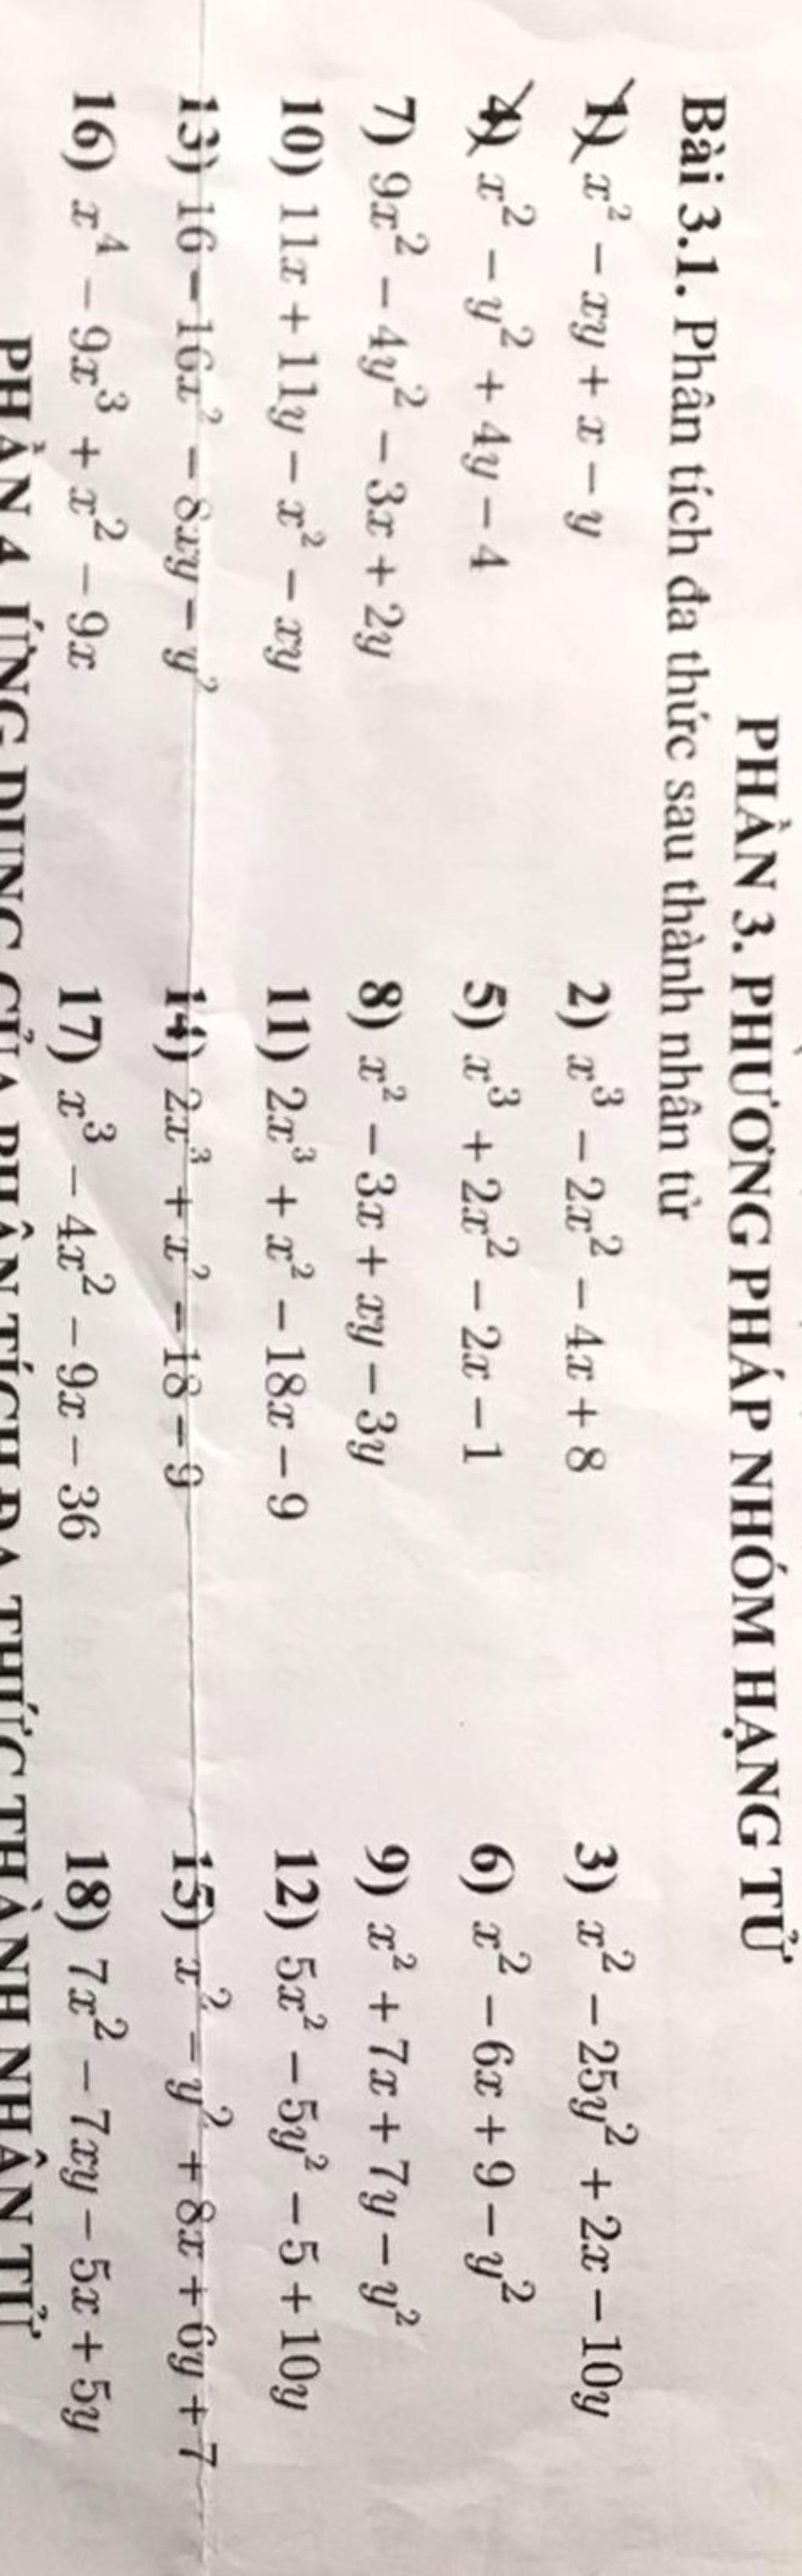 PHẦN 3. PHƯƠNG PHÁP NHÓM HẠNG TỬ
Bài 3.1. Phân tích đa thức sau thành nhân tử
1) x² − xy + x − y 2) x³ − 2x² − 4x + 8 3) x² − 25y² + 2x − 10y
4) x² − y² + 4y − 4 5) x³ + 2x² − 2x − 1 6) x² − 6x + 9 − y²
7) 9x² − 4y² − 3x + 2y 8) x² − 3x + xy − 3y 9) x² + 7x + 7y − y²
10) 11x + 11y − x² − xy 11) 2x³ + x² − 18x − 9 12) 5x² − 5y² − 5 + 10y
13) 16 − 16x² − 8xy − y² 14) 2x³ + x² − 18 − 9 15) x² − y² + 8x + 6y + 7
16) x⁴ − 9x³ + x² − 9x 17) x³ − 4x² − 9x − 36 18) 7x² − 7xy − 5x + 5y
PHẦN 4. ỨNG DỤNG CỦA PHÂN TÍCH ĐA THỨC THÀNH NHÂN TỬ